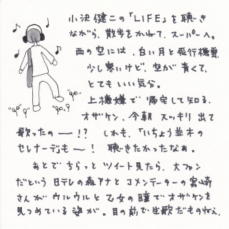 小沢健二の「LIFE」を聴き
ながら、散歩をかねて、スーパーへ。
西の空には、白い月と飛行機雲
少し寒いけど、空が青くて、
とてもいい気分。
上機嫌で帰宅して知る、
オザケン、今朝スッキリ出て
歌ったの〜!? しかも「いちょう並木の
セレナーデ」も〜! 聴きたかったなぁ。
あとでちらっとツイート見たら、大ファン
だという日テレの森アナとコメンテーターの宮崎
さんがウルウルと乙女の瞳でオザケンを
見つめている姿が。目の前で生歌だものねぇ。